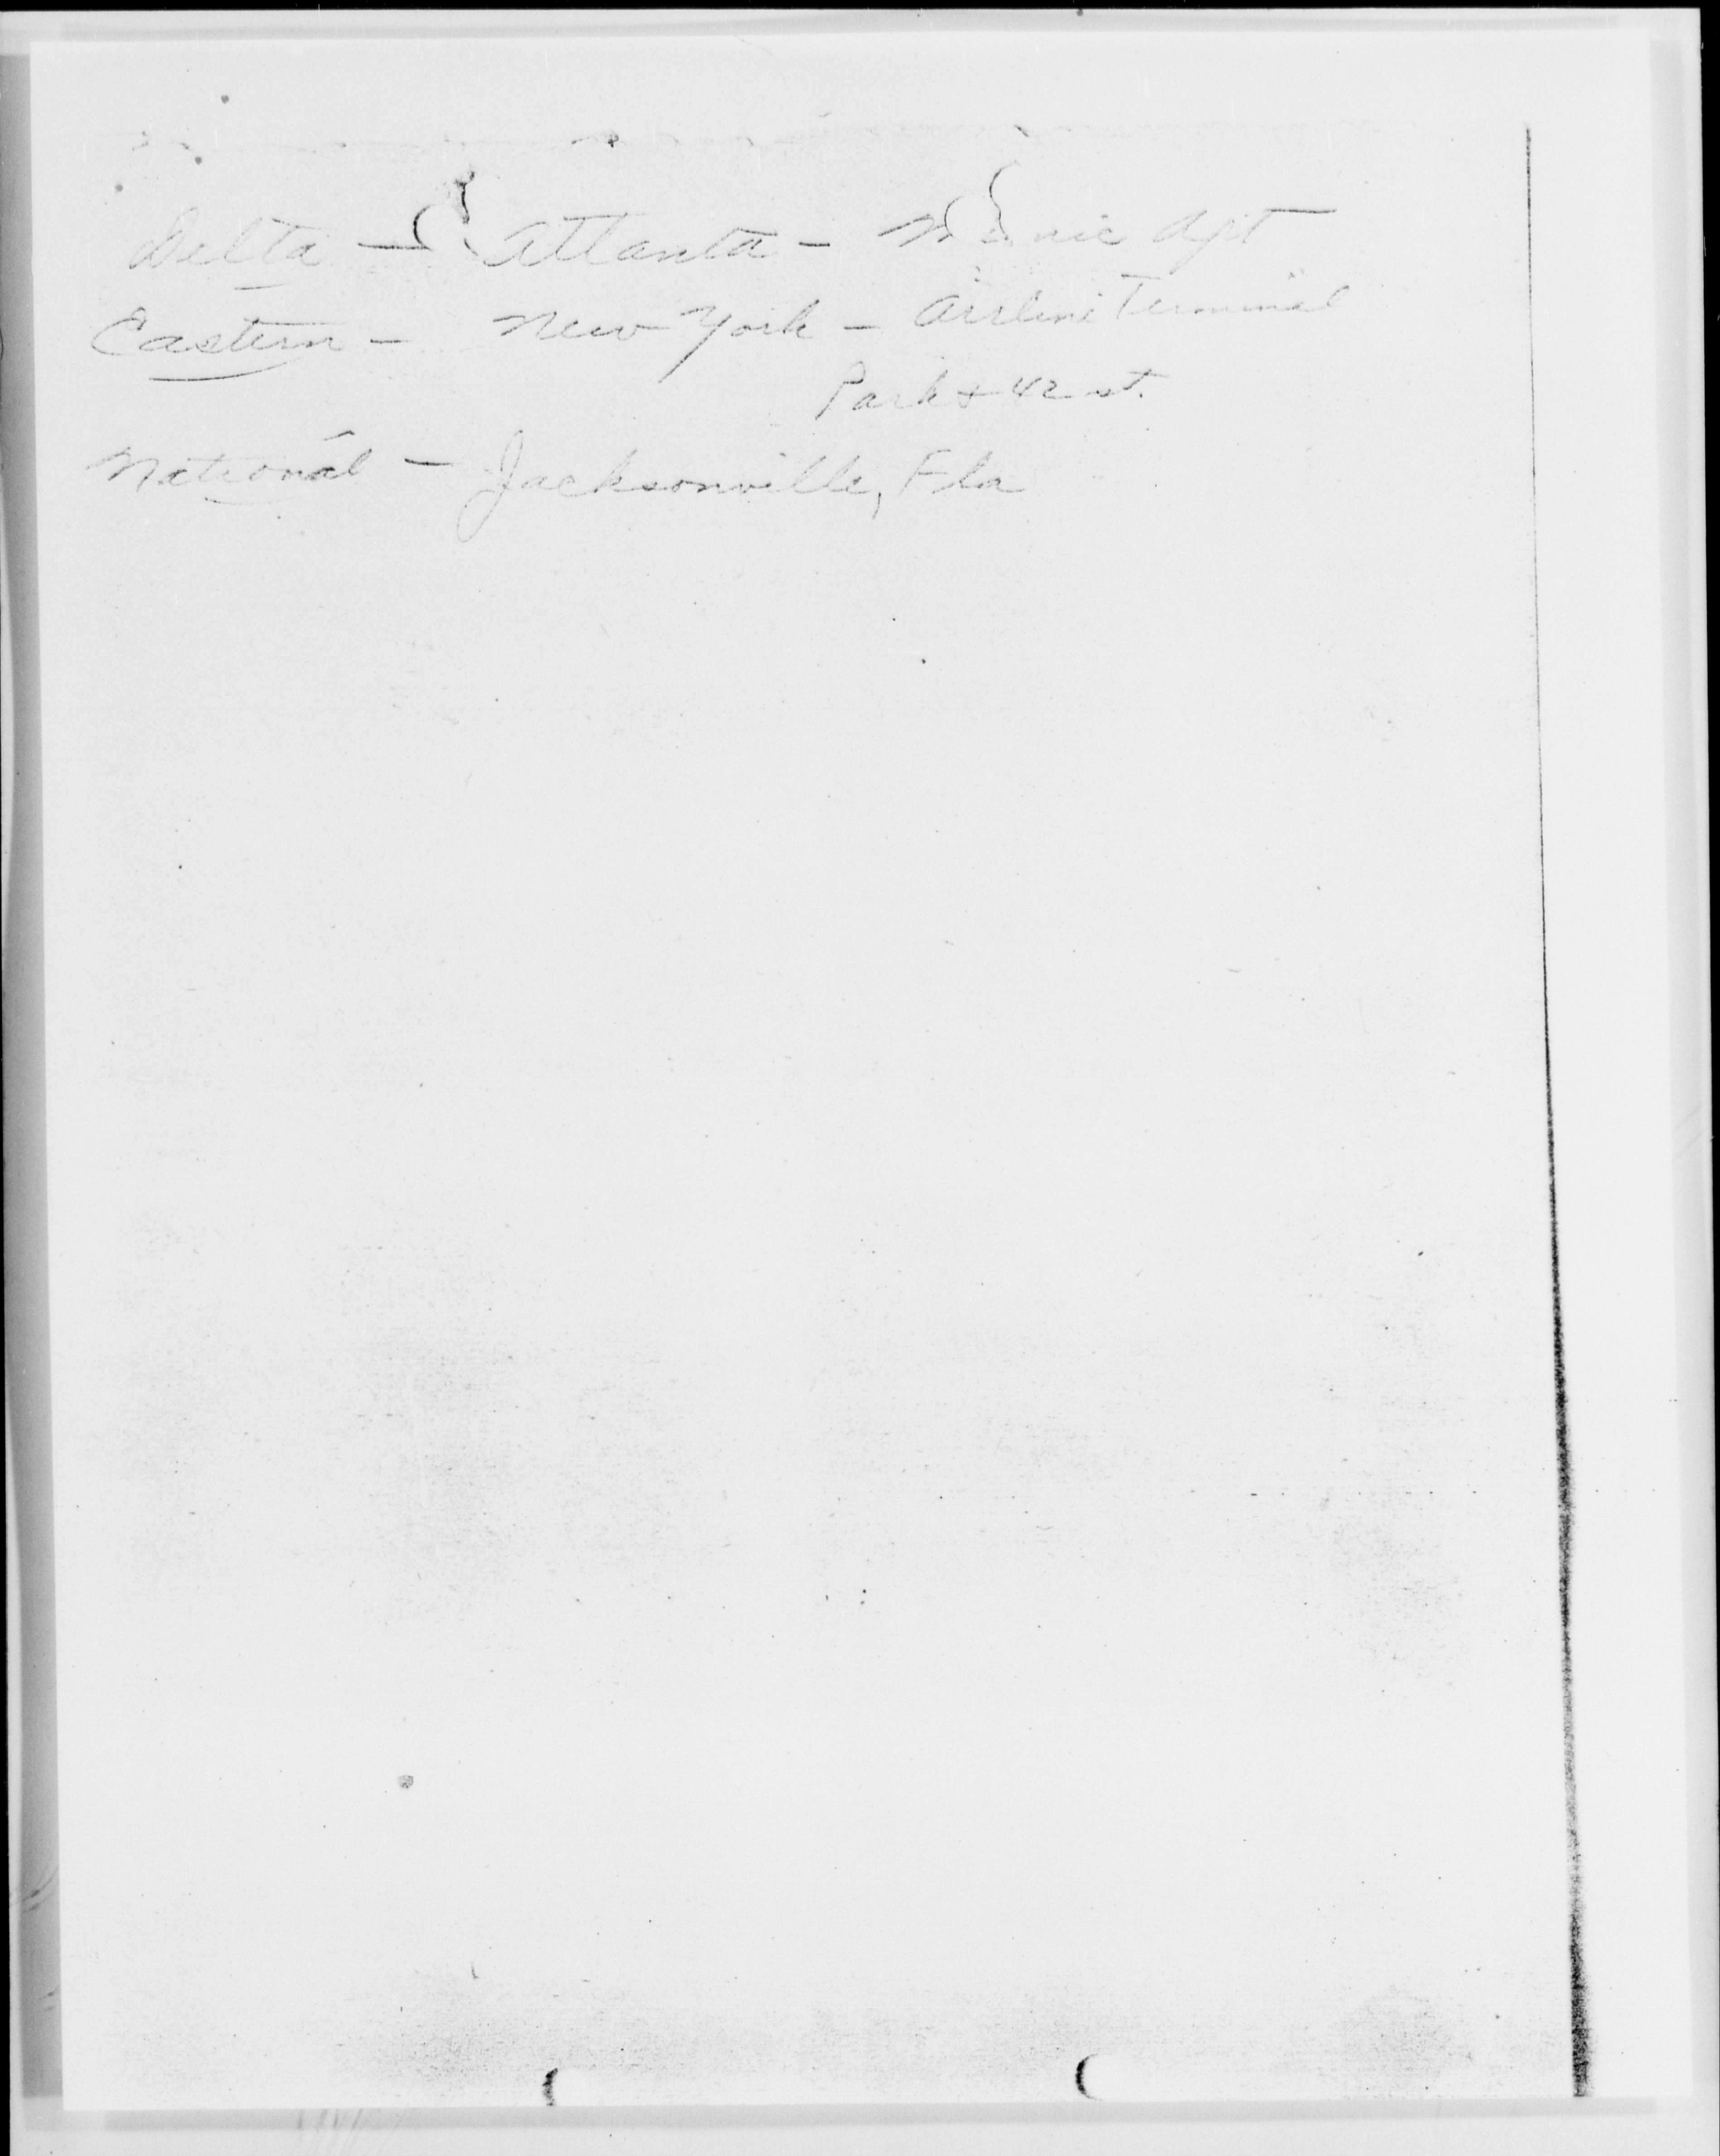 Delta - Atlanta - Munic Apt
Eastern - New York - Airline Terminal
Park & 42 st.
National - Jacksonville, Fla